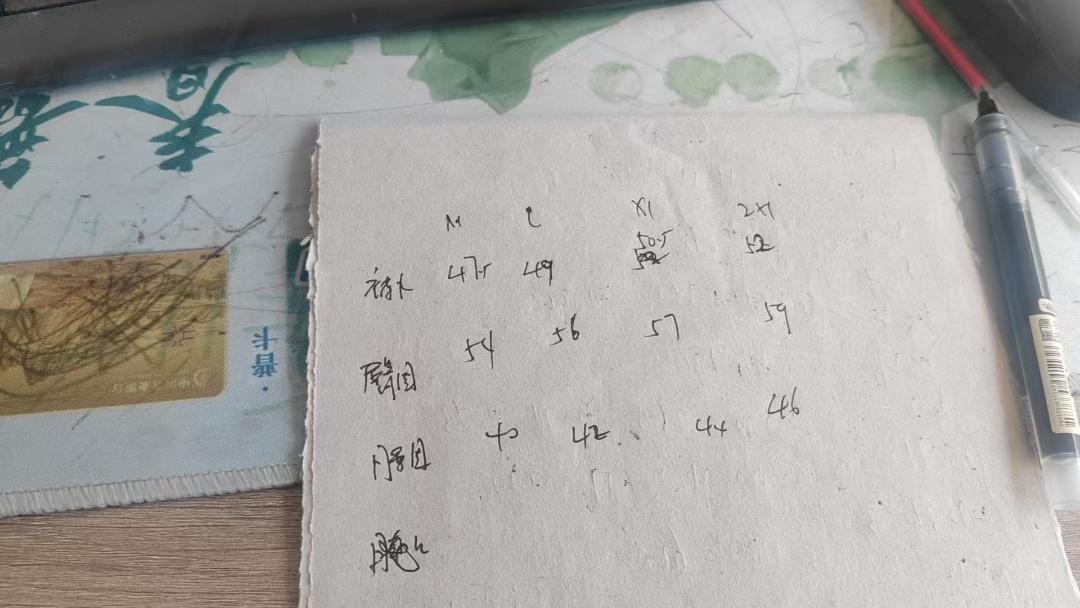 M L X1 2X1
裤长 47.5 49 50.5 52
臀围 54 56 57 59
腰围 40 42 44 46
春
普卡